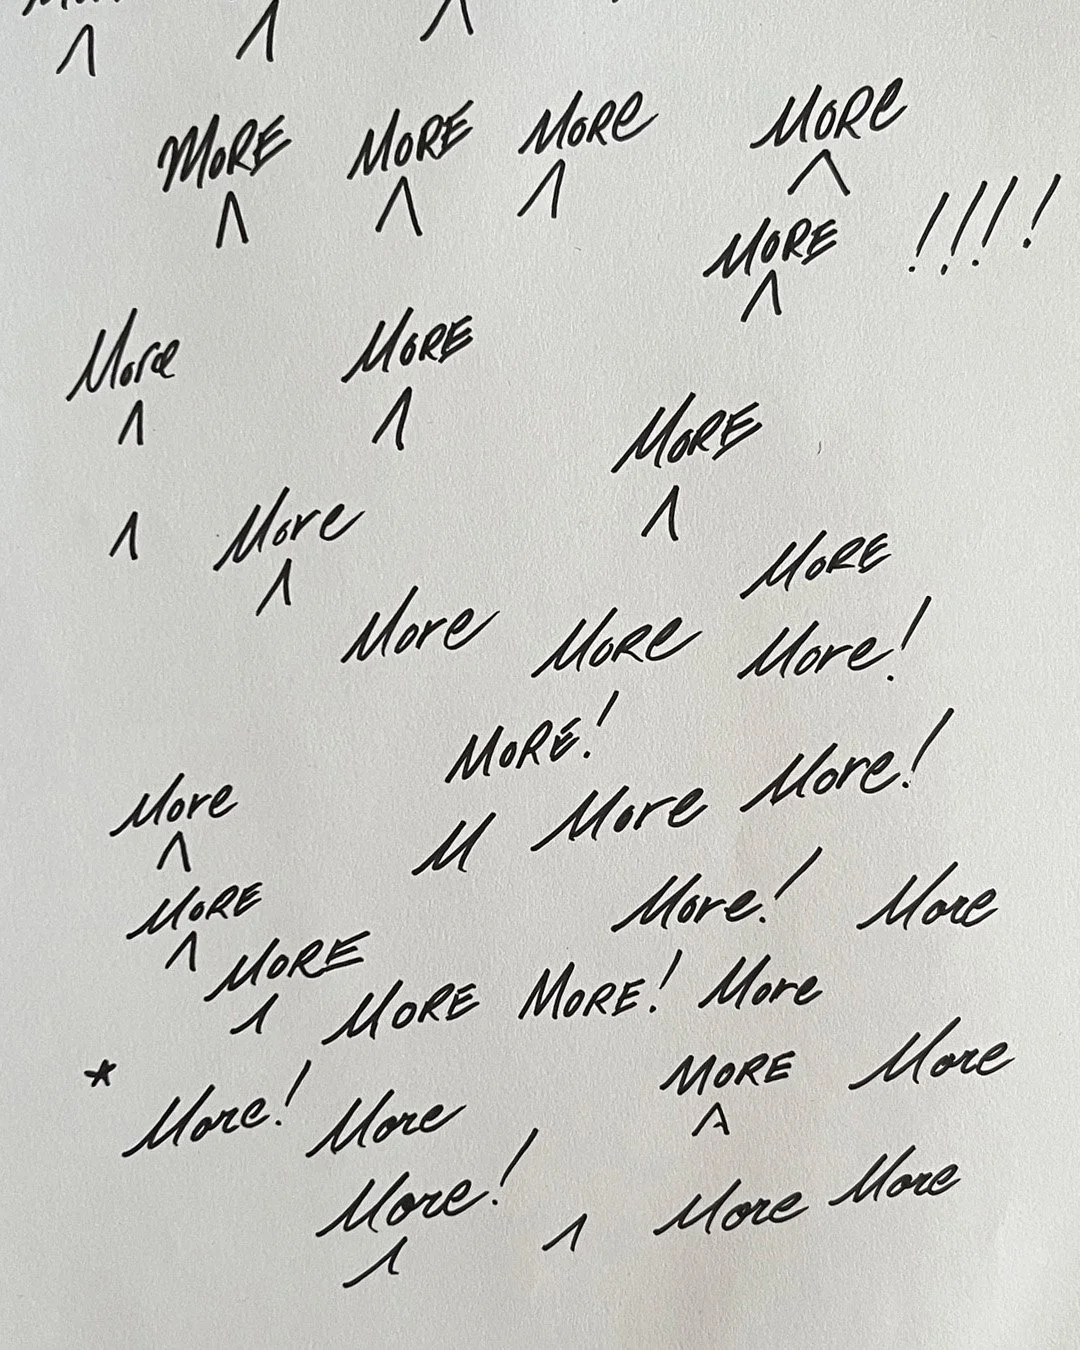 Λ Λ Λ
MORE MORE MORe MORe
Λ Λ Λ Λ
MORE !!!!
Λ
More MORE
Λ Λ
MORE
Λ
Λ More
Λ
MORE
More MORe More!
MORE!
More!
More
Λ
M More
MORE
Λ
More! More
MORE
Λ
MORE MORE! More
* More! More
MORE More
Λ
More!
Λ
Λ More More